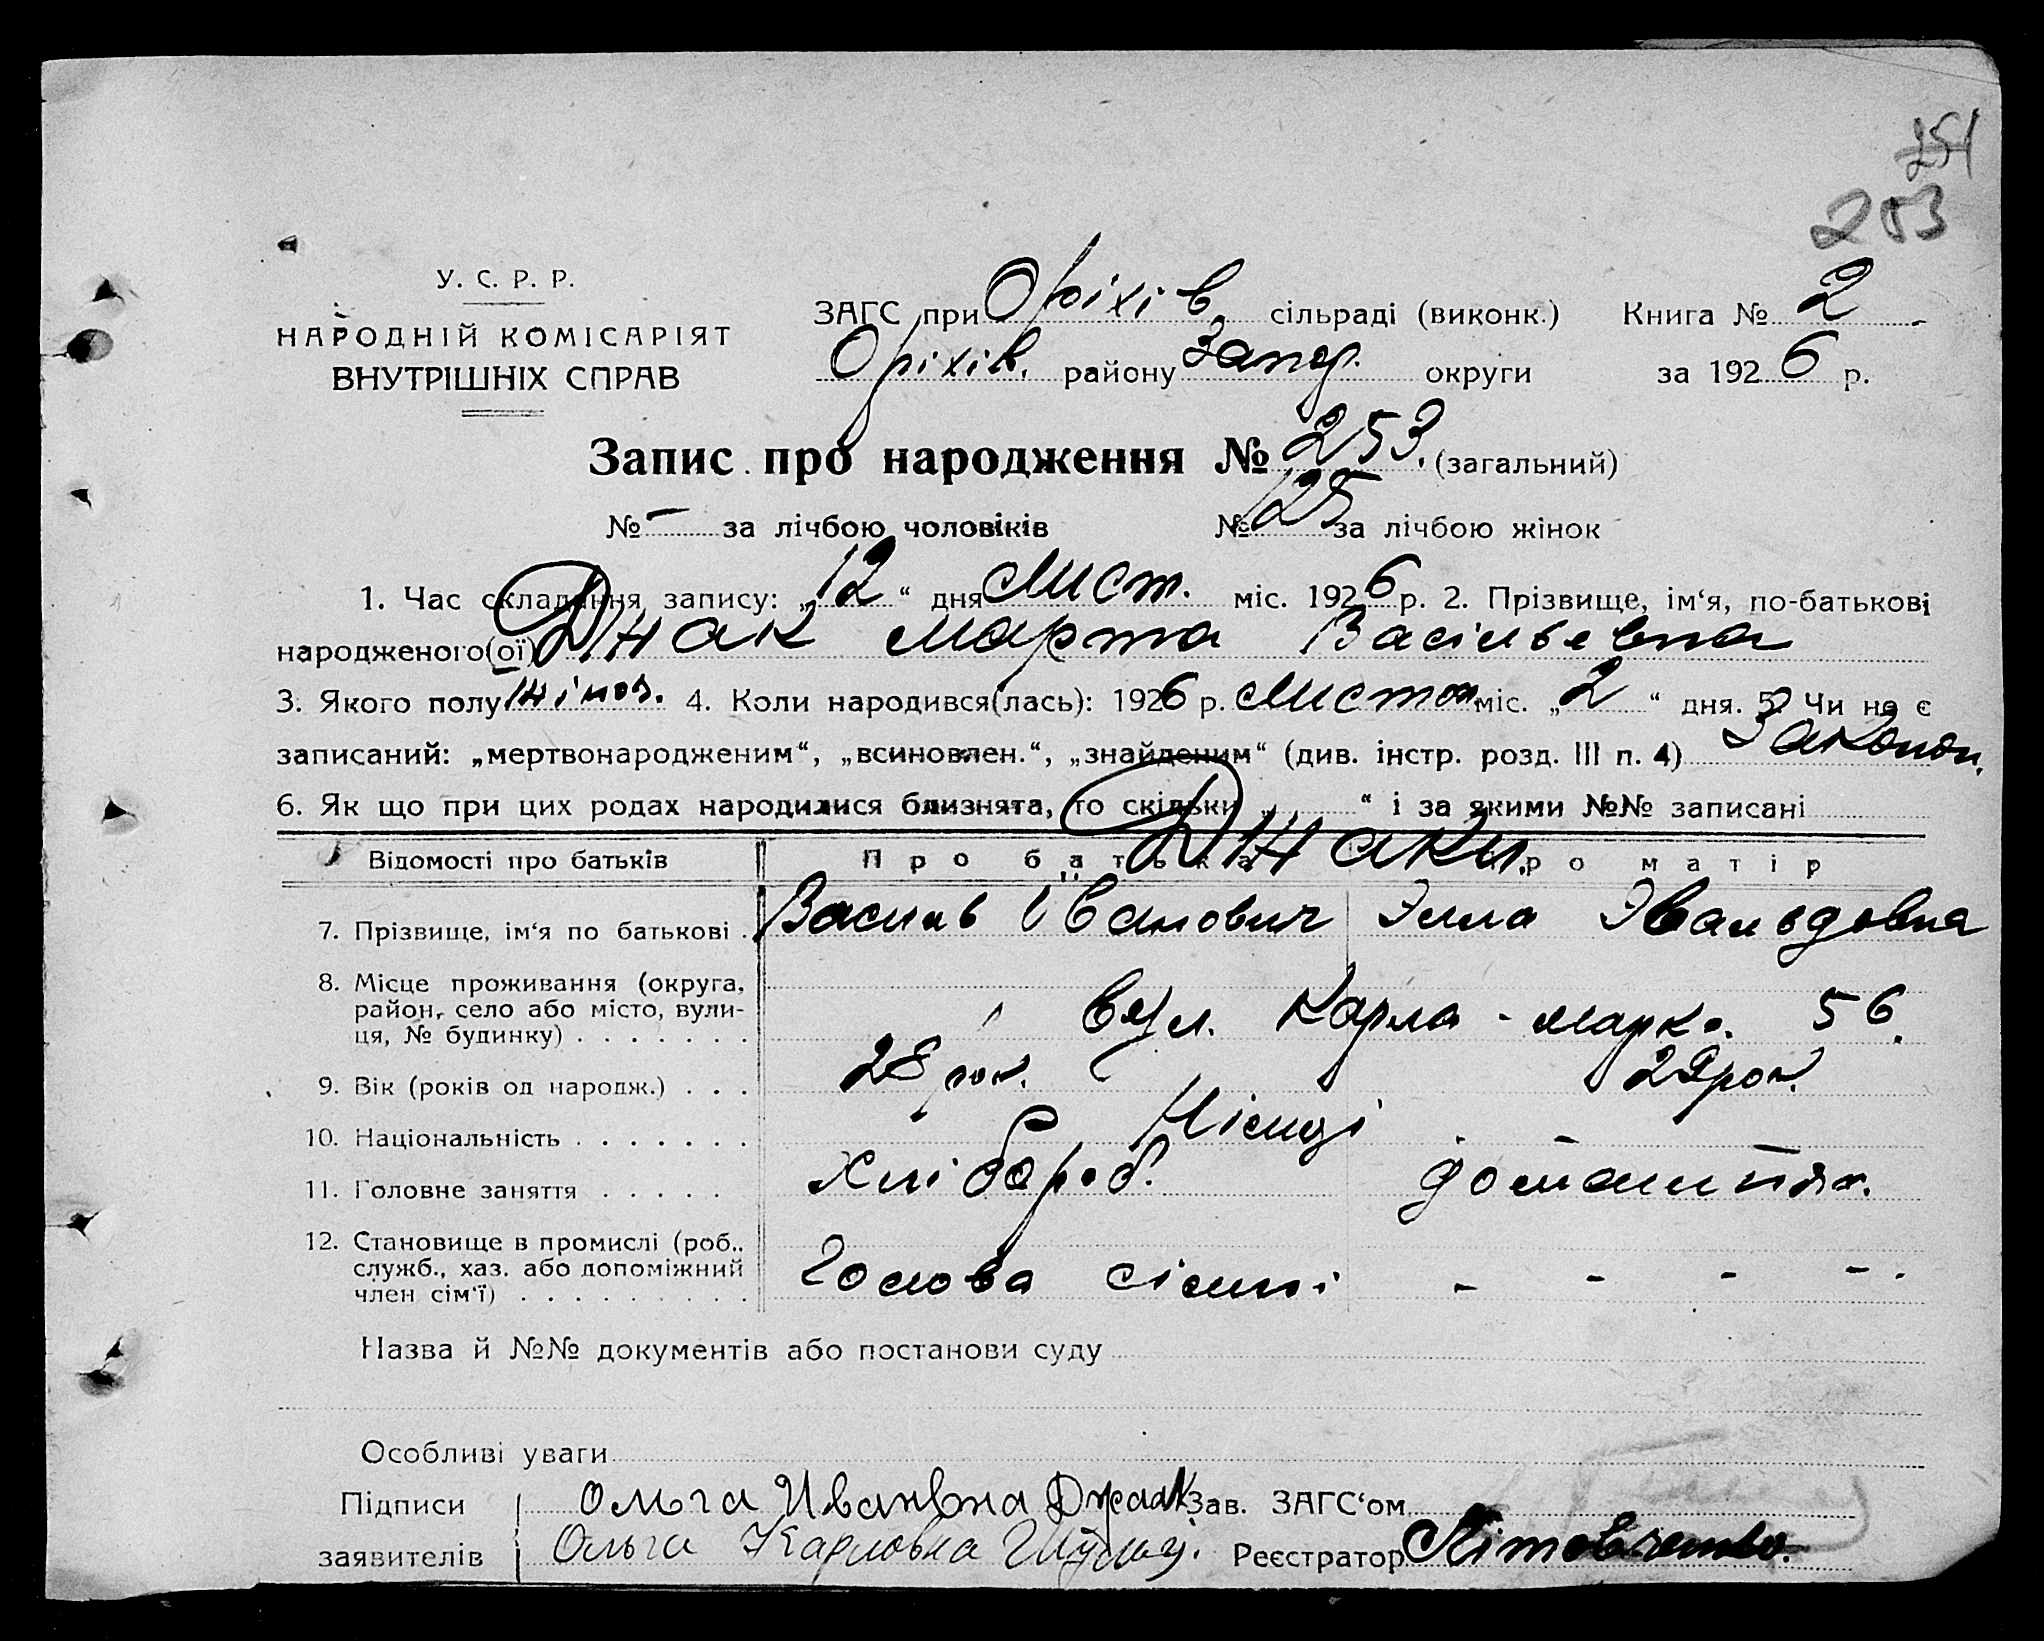 254
253
У. С. Р. Р.
НАРОДНІЙ КОМІСАРІЯТ
ВНУТРІШНІХ СПРАВ
ЗАГС при Оріхів. сільраді (виконк.) Книга № 2
Оріхів. району Запор. округи за 1926 р.
Запис про народження № 253. (загальний)
№ – за лічбою чоловіків № 125 за лічбою жінок
1. Час складання запису: „12“ дня Лист. міс. 1926 р. 2. Прізвище, ім‘я, по-батькові
народженого(ої) Джак Марта Васільевна
3. Якого полу жіноч. 4. Коли народився(лась): 1926 р. Листоп. міс. „2“ дня. 5. Чи не є
записаний: „мертвонародженим“, „всиновлен.“, „знайденим“ (див. інстр. розд. III п. 4) Законон.
6. Як що при цих родах народилися близнята, то скільки „ “ і за якими №№ записані
Відомості про батьків Про батька Джаки. Про матір
7. Прізвище, ім‘я по батькові . Василь Іванович Элла Эвальдовна
8. Місце проживання (округа,
район, село або місто, вули-
ця, № будинку) . . . . . . . вул. Карла-Марк. 56.
9. Вік (років од народж.) . . . 28 рок. 29 рок.
10. Національність . . . . . . . Німці
11. Головне заняття . . . . . Хлібороб. домашнях.
12. Становище в промислі (роб.,
служб., хаз. або допоміжний
член сім‘ї) . . . . . . . . . Голова сімні – – – –.
Назва й №№ документів або постанови суду
Особливі уваги
Підписи Ольга Ивановна Джаак Зав. ЗАГС‘ом
заявителів Ольга Карловна Реєстратор Літовченко.